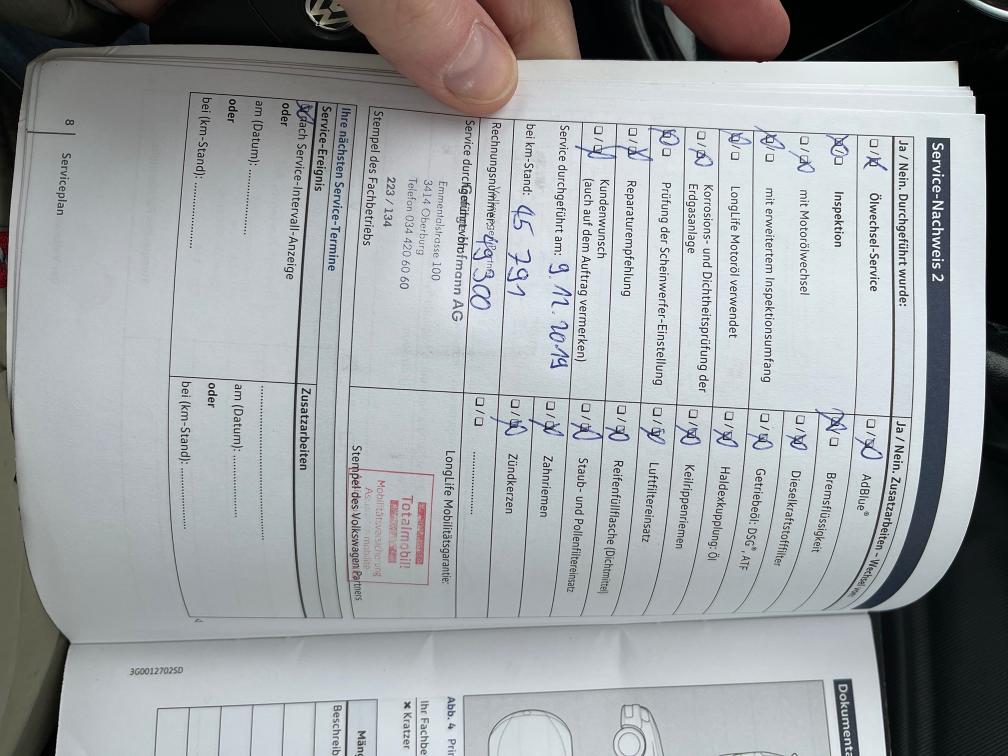 Service-Nachweis 2
Ja / Nein. Durchgeführt wurde:
Ölwechsel-Service
Inspektion
mit Motorölwechsel
mit erweitertem Inspektionsumfang
LongLife Motoröl verwendet
Korrosions- und Dichtheitsprüfung der
Erdgasanlage
Prüfung der Scheinwerfer-Einstellung
Reparaturempfehlung
Kundenwunsch
(auch auf dem Auftrag vermerken)
Service durchgeführt am: 9. 12. 2019
bei km-Stand: 45 791
Rechnungsnummer: 300
Service durchgeführt
Hofmann AG
Emmentalstrasse 100
3414 Oberburg
Telefon 034 420 60 60
223 / 134
Stempel des Fachbetriebs
Ja / Nein. Zusatzarbeiten – Wechsel
AdBlue®
Bremsflüssigkeit
Dieselkraftstofffilter
Getriebeöl: DSG®, ATF
Haldexkupplung: Öl
Keilrippenriemen
Luftfiltereinsatz
Reifenfüllflasche (Dichtmittel)
Staub- und Pollenfiltereinsatz
Zahnriemen
Zündkerzen
LongLife Mobilitätsgarantie:
Totalmobil!
Mobilitätsversicherung
Stempel des Volkswagen Partners
Ihre nächsten Service-Termine
Service-Ereignis
nach Service-Intervall-Anzeige
oder
am (Datum):
oder
bei (km-Stand):
Zusatzarbeiten
am (Datum):
oder
bei (km-Stand):
8 Serviceplan
3G0012702SD
Abb. 4
Ihr Fachbe
× Kratzer
Beschreib